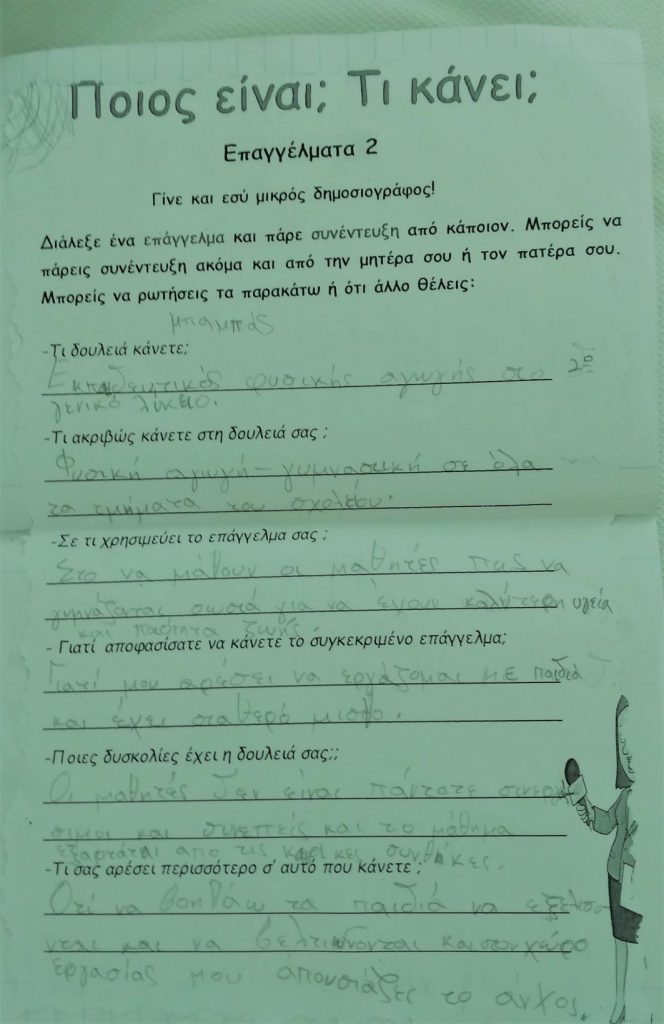 Ποιος είναι; Τι κάνει;
Επαγγέλματα 2
Γίνε και εσύ μικρός δημοσιογράφος!
Διάλεξε ένα επάγγελμα και πάρε συνέντευξη από κάποιον. Μπορείς να
πάρεις συνέντευξη ακόμα και από την μητέρα σου ή τον πατέρα σου.
Μπορείς να ρωτήσεις τα παρακάτω ή ότι άλλο θέλεις:
μπαμπάς
-Τι δουλειά κάνετε;
Εκπαιδευτικός φυσικής αγωγής στο 2ο
γενικό λύκειο.
-Τι ακριβώς κάνετε στη δουλειά σας ;
Φυσική αγωγή – γυμναστική σε όλα
τα τμήματα του σχολείου.
-Σε τι χρησιμεύει το επάγγελμα σας ;
Στο να μάθουν οι μαθητές πως να
γυμνάζονται σωστά για να έχουν καλύτερη υγεία
και ποιότητα ζωής.
- Γιατί αποφασίσατε να κάνετε το συγκεκριμένο επάγγελμα;
Γιατί μου αρέσει να εργάζομαι με παιδιά
και έχει σταθερό μισθό.
-Ποιες δυσκολίες έχει η δουλειά σας;;
Οι μαθητές δεν είναι πάντοτε συνεργά
σιμοι και συνεπείς και το μάθημα
εξαρτάται απο τις καιρικες συνθήκες.
-Τι σας αρέσει περισσότερο σ' αυτό που κάνετε ;
Οτί να βοηθάω τα παιδιά να εξελίσσο
νται και να βελτιώνονται και στον χώρο
εργασίας μου απουσιάζει το άνχος.